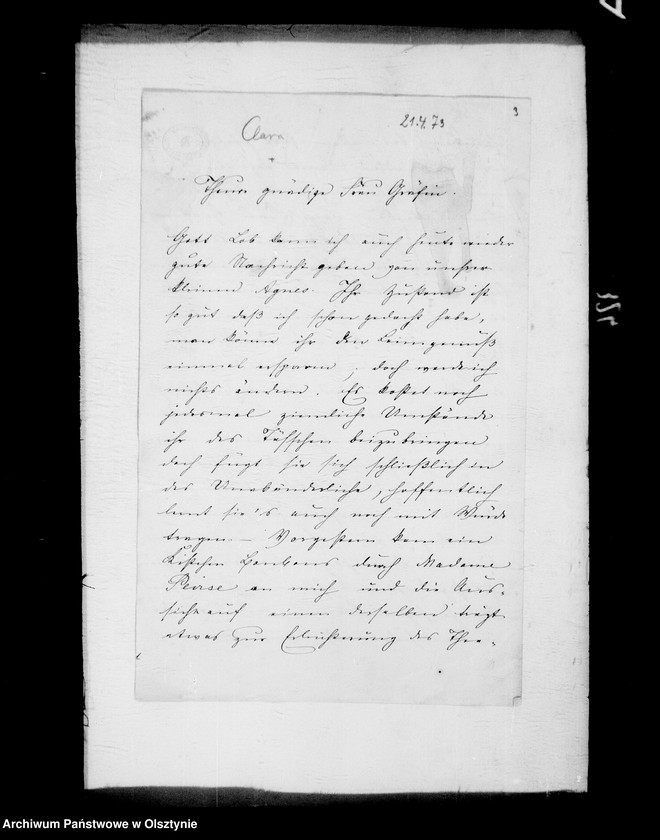 3
21.4.73
Clara
Theure gnädige Frau Gräfin.
Gott Lob kann ich auch heute wieder
gute Nachricht geben von unsrer
kleinen Agnes. Ihr Zustand ist
so gut daß ich schon gedacht habe,
man könne ihr den
einmal ersparen, doch werde ich
nichts ändern. Es kostet noch
jedesmal ziemliche Umstände
ihr das Täßchen beizubringen
doch fügt sie sich schließlich in
das Unabänderliche, hoffentlich
lernt sie's auch noch mit Würde
tragen. – Vorgestern kam ein
Kistchen Bonbons durch Madame
Peirse an mich und die Aus-
sicht auf einen derselben trägt
etwas zur Erleichterung des Thee-
324
Archiwum Państwowe w Olsztynie